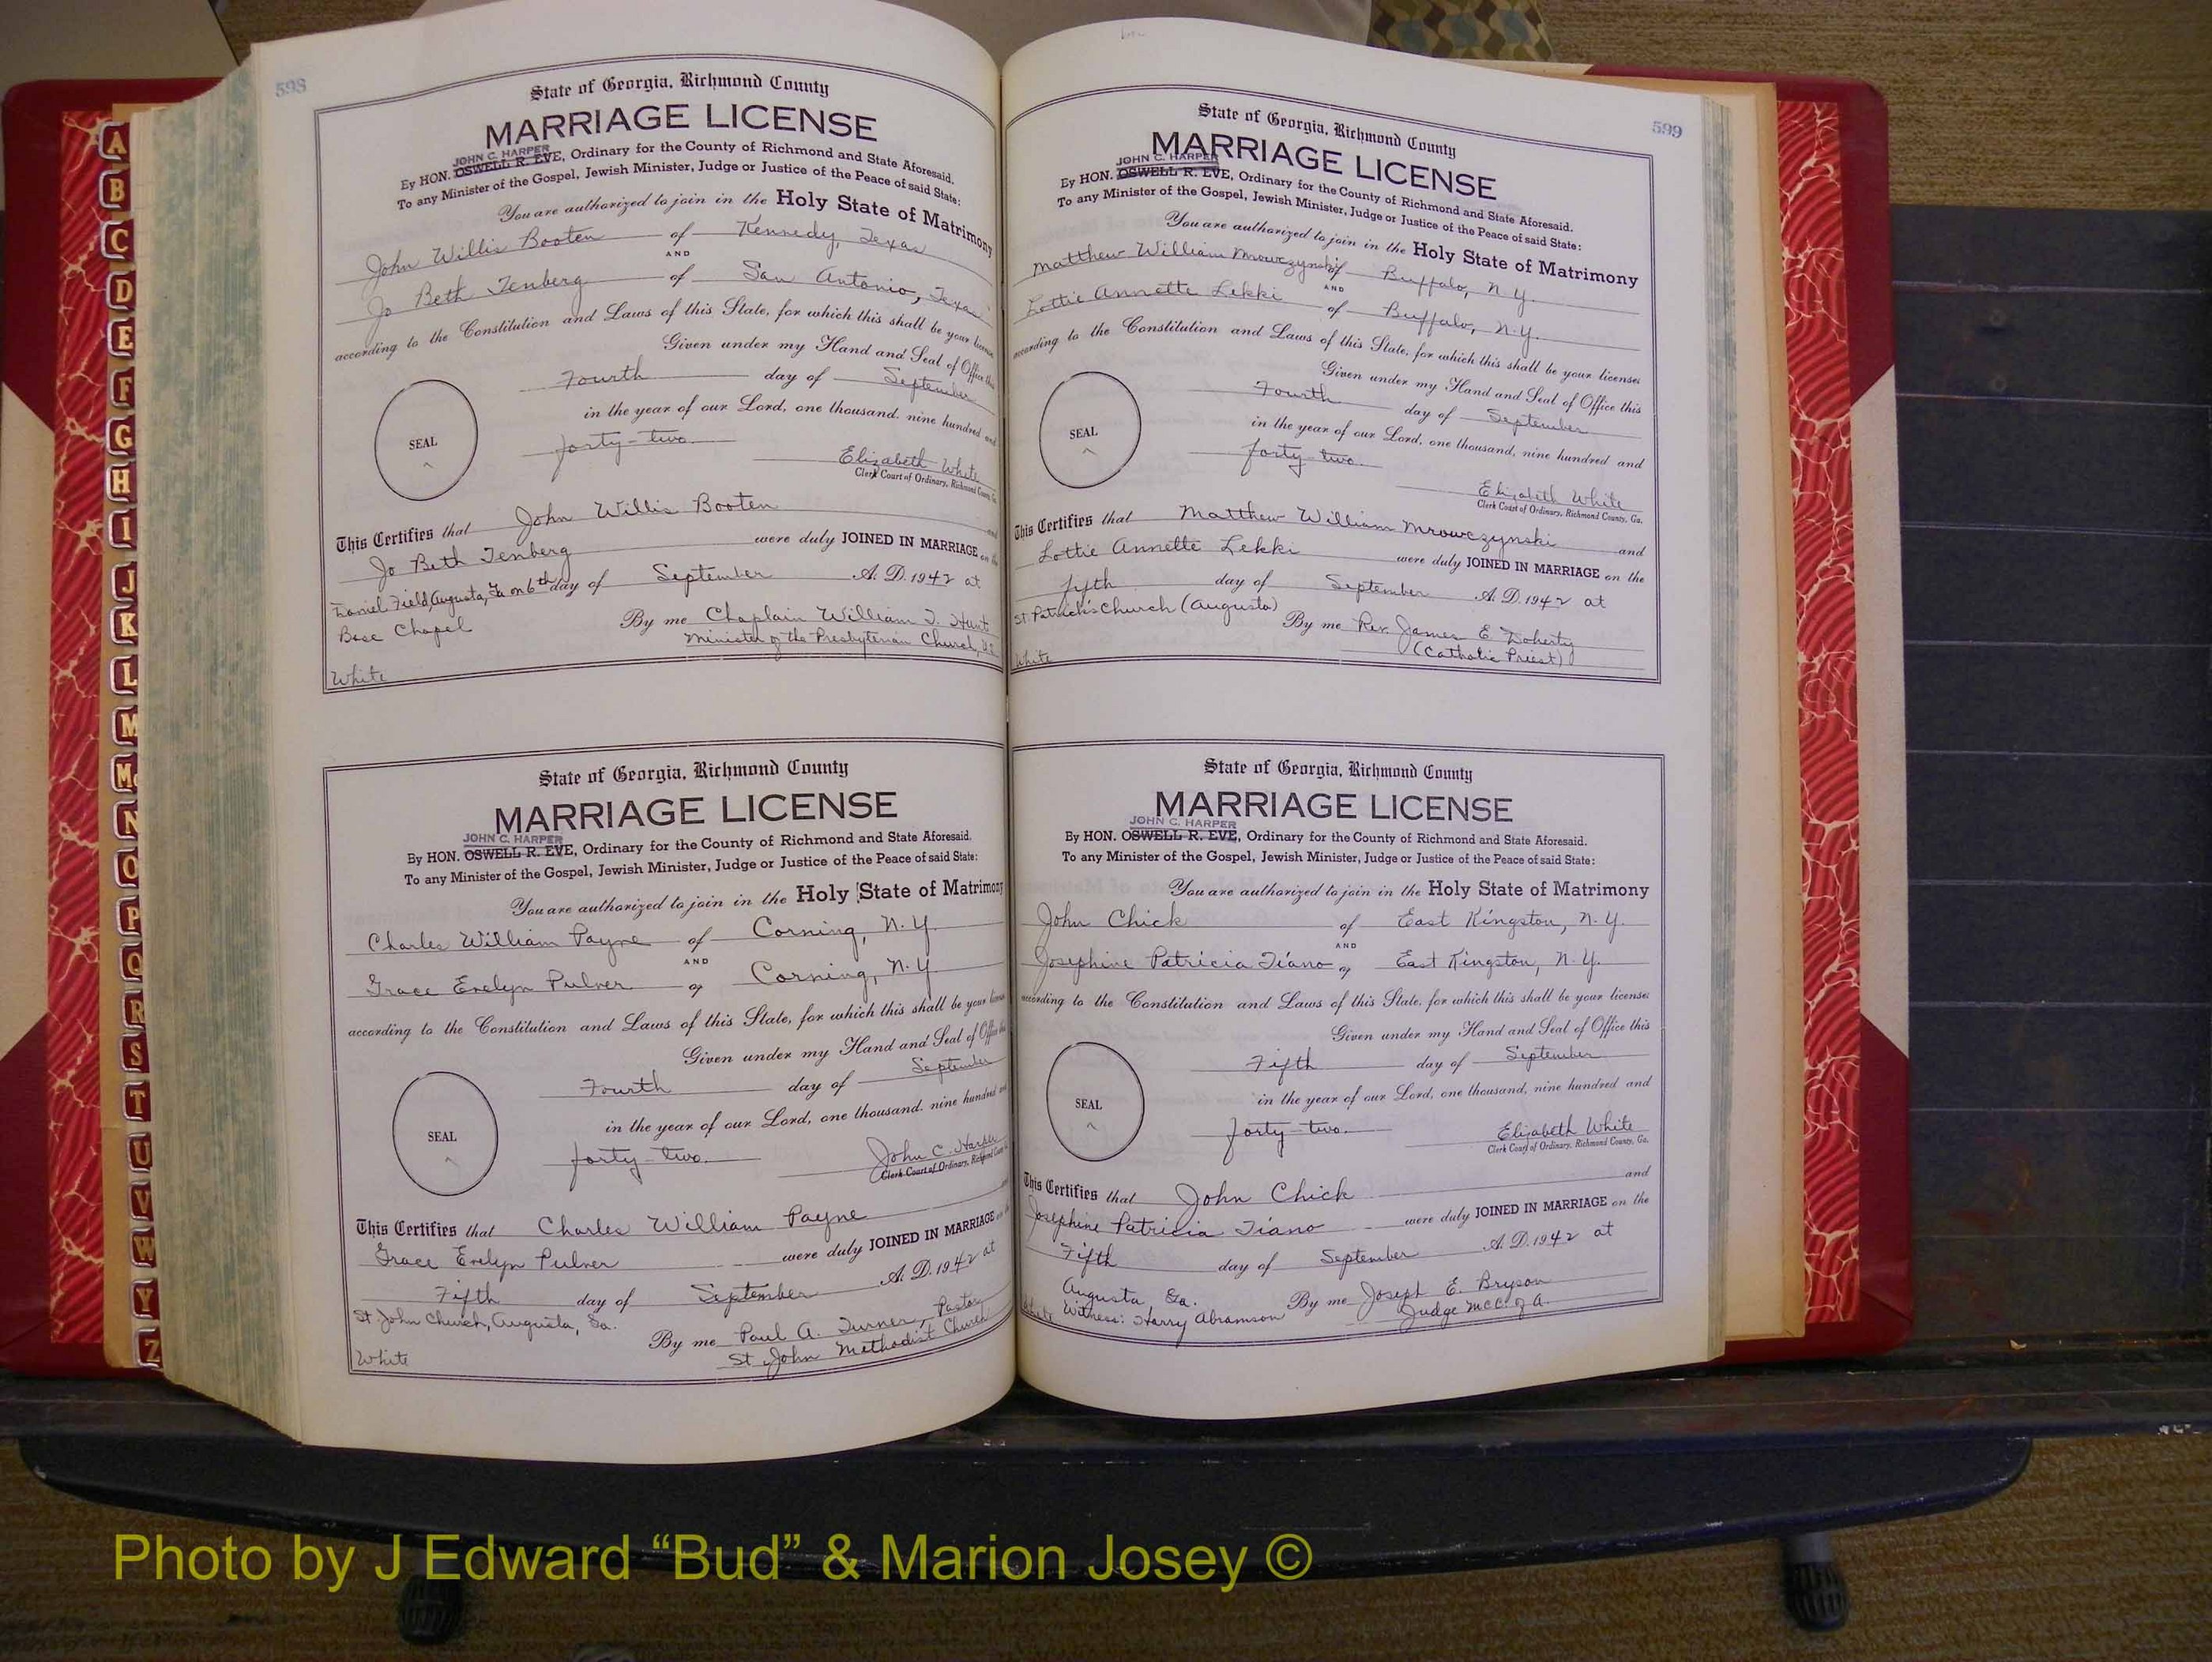 598
State of Georgia, Richmond County
MARRIAGE LICENSE
JOHN C. HARPER
By HON. OSWELL R. EVE, Ordinary for the County of Richmond and State Aforesaid.
To any Minister of the Gospel, Jewish Minister, Judge or Justice of the Peace of said State:
You are authorized to join in the Holy State of Matrimony
John Willis Booten of Kennedy, Texas
AND
Jo Beth Tenberg of San Antonio, Texas
according to the Constitution and Laws of this State, for which this shall be your license
Given under my Hand and Seal of Office this
Fourth day of September
in the year of our Lord, one thousand, nine hundred and
forty-two.
SEAL
Elizabeth White
Clerk Court of Ordinary, Richmond County, Ga.
This Certifies that John Willis Booten and
Jo Beth Tenberg were duly JOINED IN MARRIAGE on the
Daniel Field, Augusta, Ga on 6th day of September A. D. 1942 at
Base Chapel By me Chaplain William T. Hunt
Minister of the Presbyterian Church, U.S.
White
State of Georgia, Richmond County
MARRIAGE LICENSE
JOHN C. HARPER
By HON. OSWELL R. EVE, Ordinary for the County of Richmond and State Aforesaid.
To any Minister of the Gospel, Jewish Minister, Judge or Justice of the Peace of said State:
You are authorized to join in the Holy State of Matrimony
Charles William Payne of Corning, N.Y.
AND
Grace Evelyn Pulver of Corning, N.Y.
according to the Constitution and Laws of this State, for which this shall be your license
Given under my Hand and Seal of Office this
Fourth day of September
in the year of our Lord, one thousand, nine hundred and
forty-two.
SEAL
John C. Harper
Clerk Court of Ordinary, Richmond County
This Certifies that Charles William Payne
Grace Evelyn Pulver were duly JOINED IN MARRIAGE on the
Fifth day of September A. D. 1942 at
St. John Church, Augusta, Ga. By me Paul A. Turner, Pastor
St. John Methodist Church
White
599
State of Georgia, Richmond County
MARRIAGE LICENSE
JOHN C. HARPER
By HON. OSWELL R. EVE, Ordinary for the County of Richmond and State Aforesaid.
To any Minister of the Gospel, Jewish Minister, Judge or Justice of the Peace of said State:
You are authorized to join in the Holy State of Matrimony
Matthew William Mrowczynski of Buffalo, N.Y.
AND
Lottie Annette Lekki of Buffalo, N.Y.
according to the Constitution and Laws of this State, for which this shall be your license:
Given under my Hand and Seal of Office this
Fourth day of September
in the year of our Lord, one thousand, nine hundred and
forty two.
SEAL
Elizabeth White
Clerk Court of Ordinary, Richmond County, Ga.
This Certifies that Matthew William Mrowczynski and
Lottie Annette Lekki were duly JOINED IN MARRIAGE on the
Fifth day of September A. D. 1942 at
St. Patrick's Church (Augusta) By me Rev. James E. Doherty
(Catholic Priest)
White
State of Georgia, Richmond County
MARRIAGE LICENSE
JOHN C. HARPER
By HON. OSWELL R. EVE, Ordinary for the County of Richmond and State Aforesaid.
To any Minister of the Gospel, Jewish Minister, Judge or Justice of the Peace of said State:
You are authorized to join in the Holy State of Matrimony
John Chick of East Kingston, N.Y.
AND
Josephine Patricia Tiano of East Kingston, N.Y.
according to the Constitution and Laws of this State, for which this shall be your license:
Given under my Hand and Seal of Office this
Fifth day of September
in the year of our Lord, one thousand, nine hundred and
forty-two.
SEAL
Elizabeth White
Clerk Court of Ordinary, Richmond County, Ga.
This Certifies that John Chick and
Josephine Patricia Tiano were duly JOINED IN MARRIAGE on the
Fifth day of September A. D. 1942 at
Augusta, Ga. By me Joseph E. Bryson
White Witness: Harry Abramson Judge M.C.C. of A.
A
B
C
D
E
F
G
H
I
J
K
L
M
Mc
N
O
P
Q
R
S
T
U
V
W
Y
Z
Photo by J Edward “Bud” & Marion Josey ©